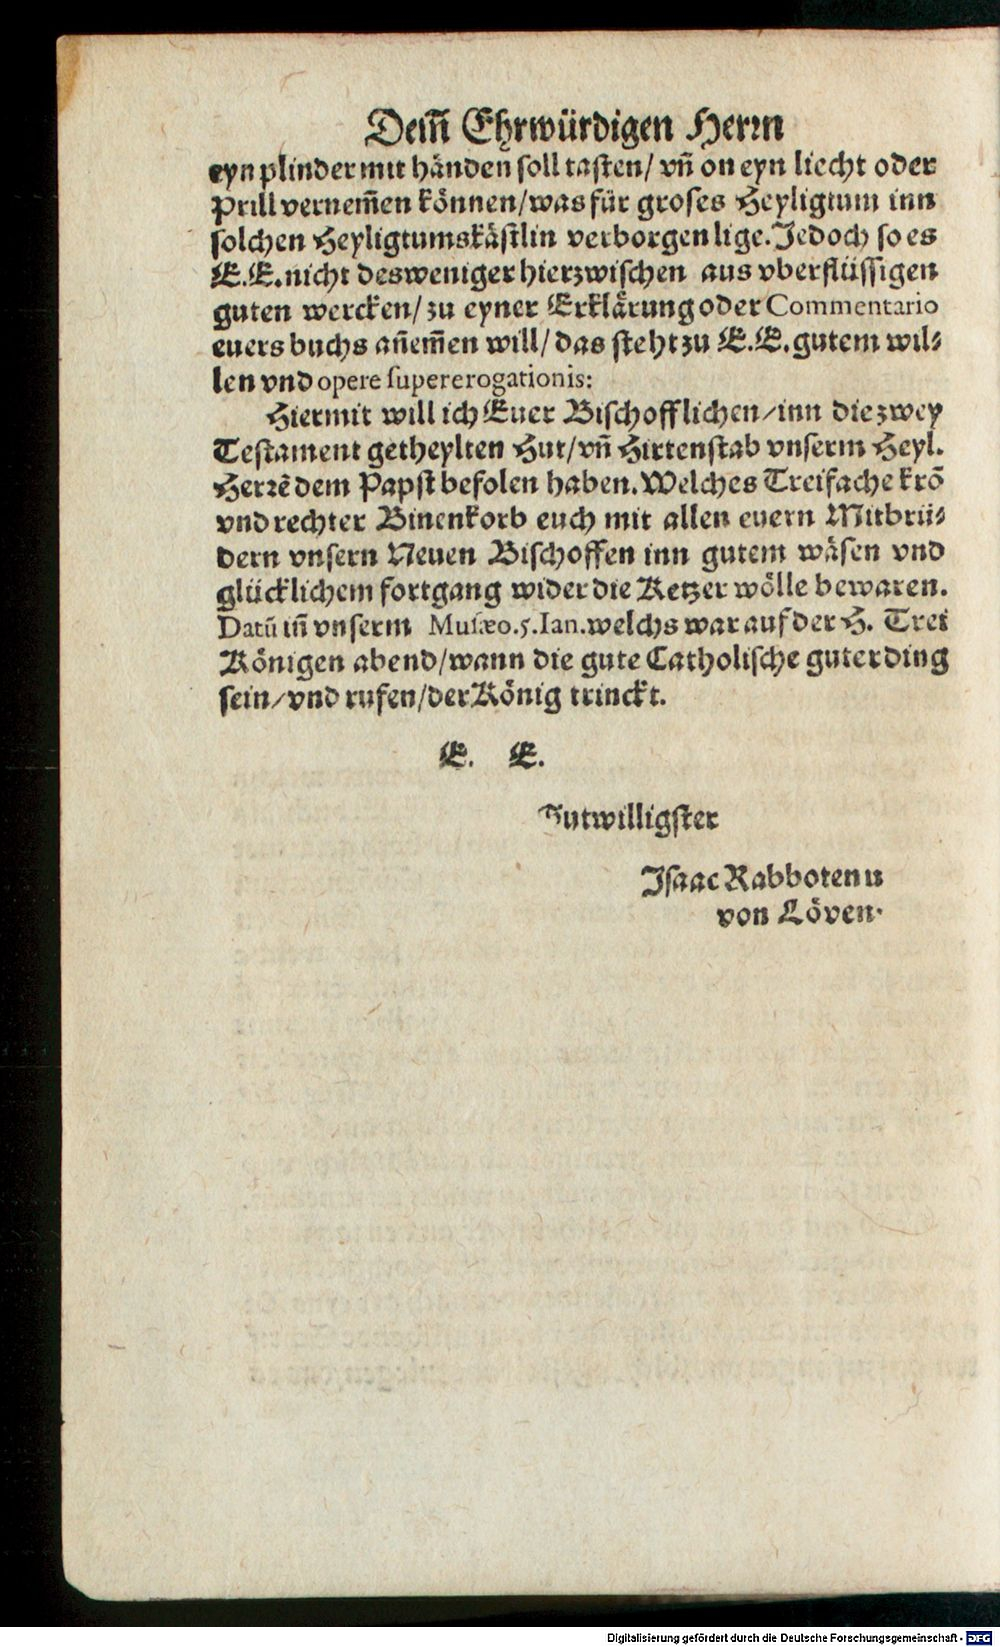 Dem̄ Ehrwürdigen Herꝛn
eyn plinder mit händen soll tasten/ vn̄ on eyn liecht oder
Prill vernem̄en können/was für groses Heyligtum inn
solchen Heyligtumskästlin verborgen lige. Jedoch so es
E.E. nicht desweniger hierzwischen aus vberflüssigen
guten wercken/ zu eyner Erklärung oder Commentario
euers buchs an̄em̄en will/ das steht zu E.E. gutem wil⸗
len vnd opere ſupererogationis:
Hiermit will ich Euer Bischofflichen/inn die zwey
Testament getheylten Hut/vn̄ Hirtenstab vnserm Heyl.
Herꝛē dem Papst befolen haben. Welches Treifache krō
vnd rechter Binenkorb euch mit allen euern Mitbrü⸗
dern vnsern Neuen Bischoffen inn gutem wäsen vnd
glücklichem fortgang wider die Ketzer wölle bewaren.
Datū in̄ vnserm Muſæo.5.Ian.welchs war auf der H. Trei
Königen abend/wann die gute Catholische guter ding
sein/vnd rufen/der König trinckt.
E. E.
Gutwilligster
Isaac Rabbotenu
von Löven.
Digitalisierung gefördert durch die Deutsche Forschungsgemeinschaft - DFG